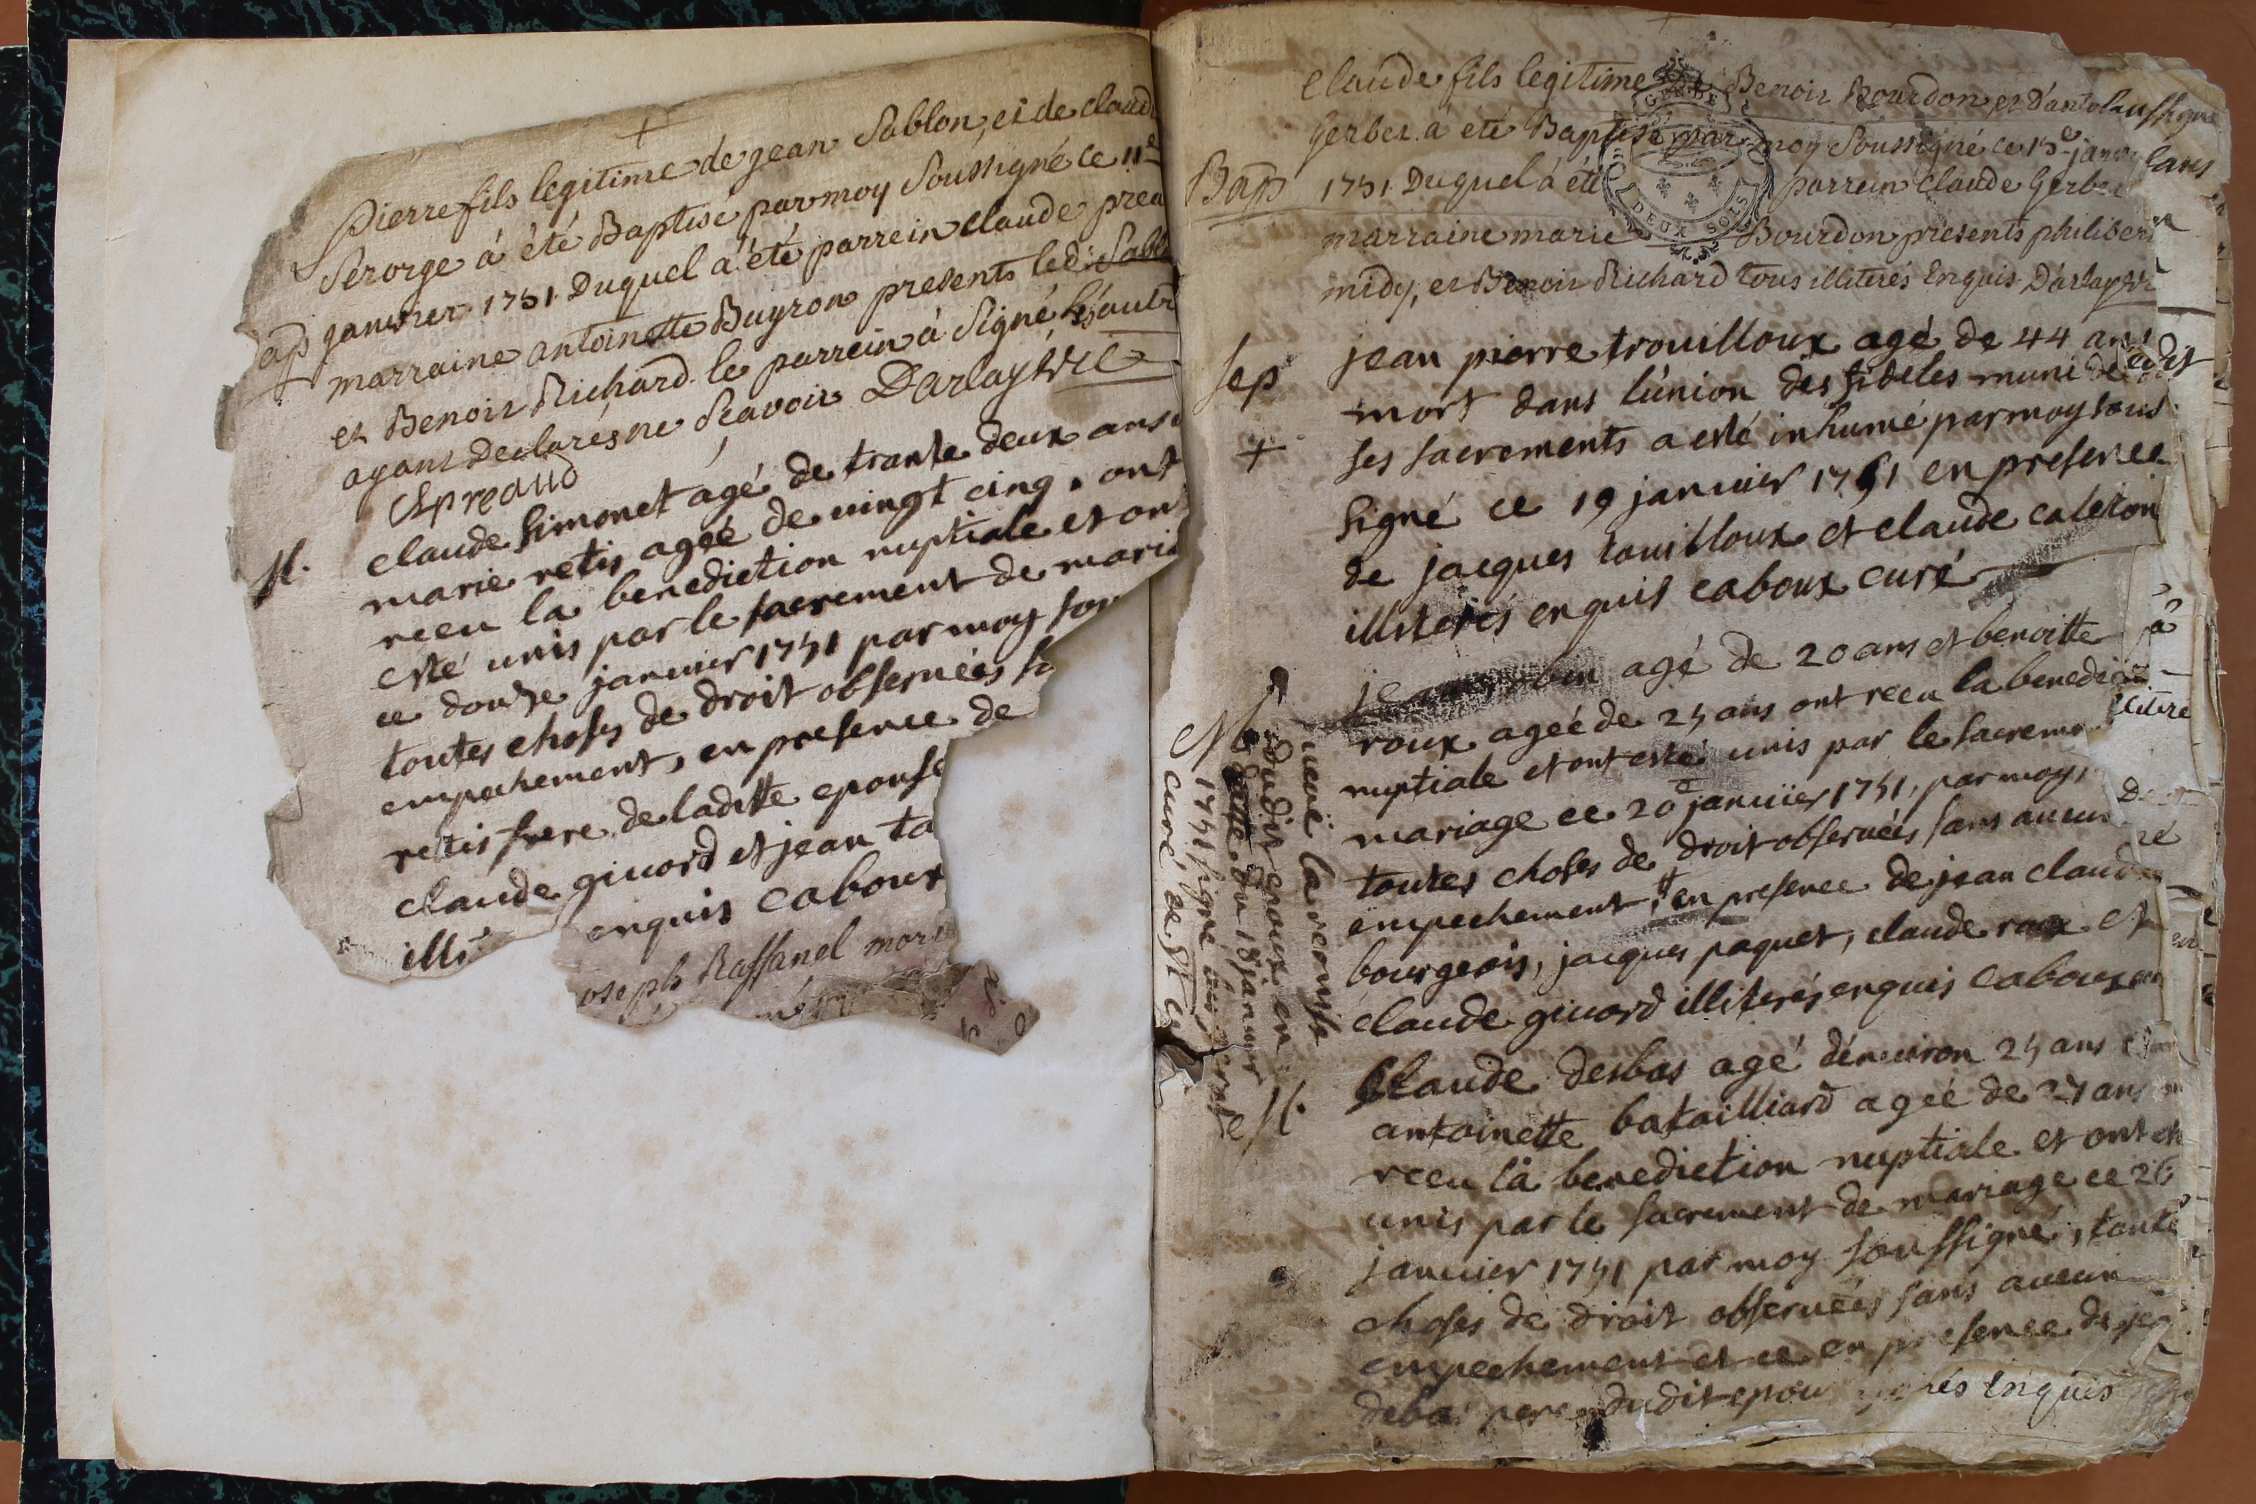 Pierre fils legitime de jean Sablon, et de claud
Serorge à été Baptisé par moy Soussigné ce 11e
ap janvier 1751 Duquel à été parrein claude preau
marraine antoinette Buyron presents ledit Sablo
et Benoit Richard. le parrein à Signé les autr
ayant declarés ne Scavoir Darlay vic
Cl preaud
claude simonet agé de trante deux ans
marie retis ageé de vingt cinq, ont
M. receu la benediction nuptiale et ont
esté unis par le sacrement de maria
ce douze janvier 1751 par moy sou
toutes choses de droit observeés sa
empechement, en presence de
retis frere de laditte epouse
claude givord et jean ta
illi enquis caboux
oseph Raffanel mor
claude fils legitime Benoit Bourdon et d'anto
Gerbet à eté Baptisé par moy Soussigné ce 13e janv
Bap 1751 Duquel à été parrein claude Gerbe
marraine marie Bourdon presents philiber
midy, et Benoit Richard tous illiterés Enquis Darlay vic
Sep jean pierre trouilloux agé de 44 ans
mort dans l'union des fideles muni de
+ ses sacrements a esté inhumé par moy sous
signé ce 19 janvier 1751 en presence
de jacques touilloux et claude cateron
illiterés enquis caboux curé
agé de 20 ans et benoitte
roux ageé de 25 ans ont receu la benedic
nuptiale et ont esté unis par le sacreme
mariage ce 20e janvier 1751, par moy
toutes choses de droit observeés sans aucun
empechement, en presence de jean claude
bourgeois, jacques paquet, claude roux et
claude givord illiterés enquis caboux
M. Claude desbas agé d'environ 25 ans
antoinette batailliard ageé de 27 ans
receu la benediction nuptiale et ont
unis par le sacrement de mariage ce 26
janvier 1751 par moy soussigné, toute
choses de droit observeés sans aucun
empechement et ce en presence de
debas pere dudit epou enquis
Nb
veue la remise
dudit epoux en
datte du 18 janvier
1751 signé
curé de St